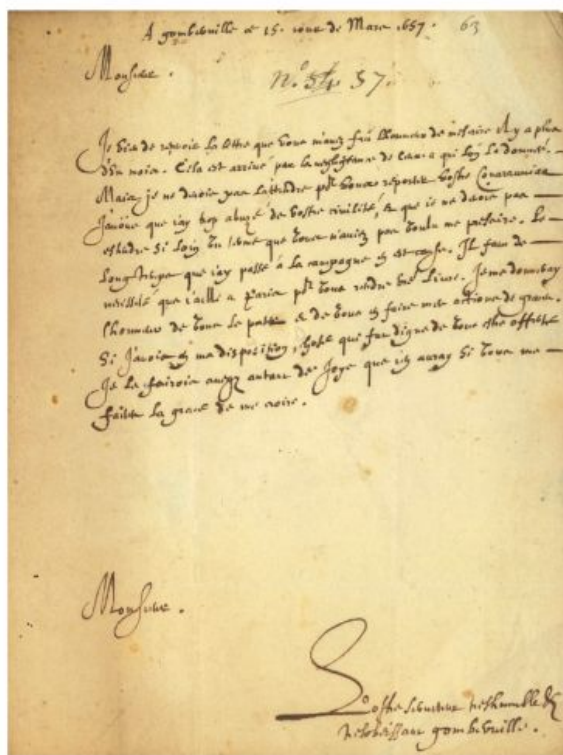 A gombervuille ce 15. iour de Mars 1657. 63
Monsieur.
N.º 54 57.
Je viens de reçevoir la lettre que vous m'auez fait l'honneur de m'escrire il y a plus
d'un mois. Cela est arriué par la negligence de ceux a qui l'on l'a donnée.
Mais je ne deuois pas l'attendre pour vous reporter vostre
J'auoüe que i'ay trop abuzé de vostre ciuilité, & que ie ne deuois pas
estendre si loin un terme que vous n'auiez pas voulu me prescrire. Le
long temps que i'ay passé à la campagne en est cause. Il faut de
necessité que i'aille a Paris pour vous rendre vos Liures. Je me donneray
l'honneur de vous les porter & de vous en faire mes actions de graces.
Si j'auois en ma disposition, chose qui fut digne de vous estre offerte
Je le ferois auec autant de Joye que i'en auray si vous me
faites la grace de me croire.
Monsieur.
Vostre seruiteur treshumble &
tresobeissant gomberuille.